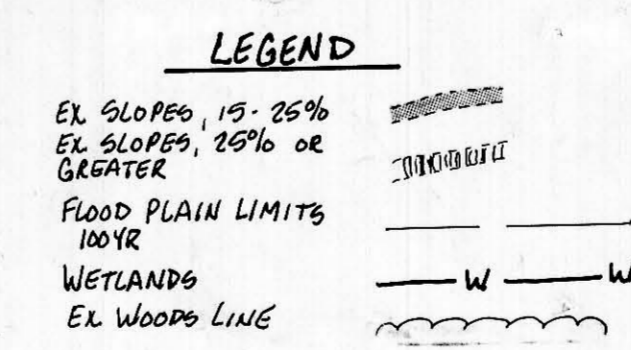 LEGEND
EX SLOPES, 15-25%
EX. SLOPES, 25% OR
GREATER
FLOOD PLAIN LIMITS
100 YR
WETLANDS W W
EX. WOODS LINE